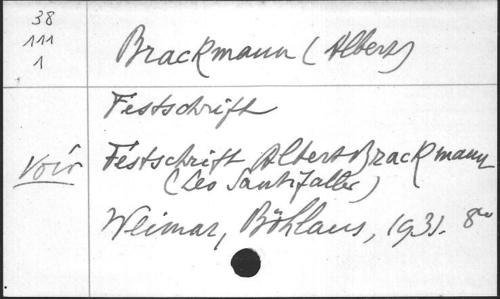 38
111
1
Brackmann (Albert)
Festschrift
Voir Festschrift Albert Brackmann
(Leo Santifaller)
Weimar, Böhlaus, 1931. 8°